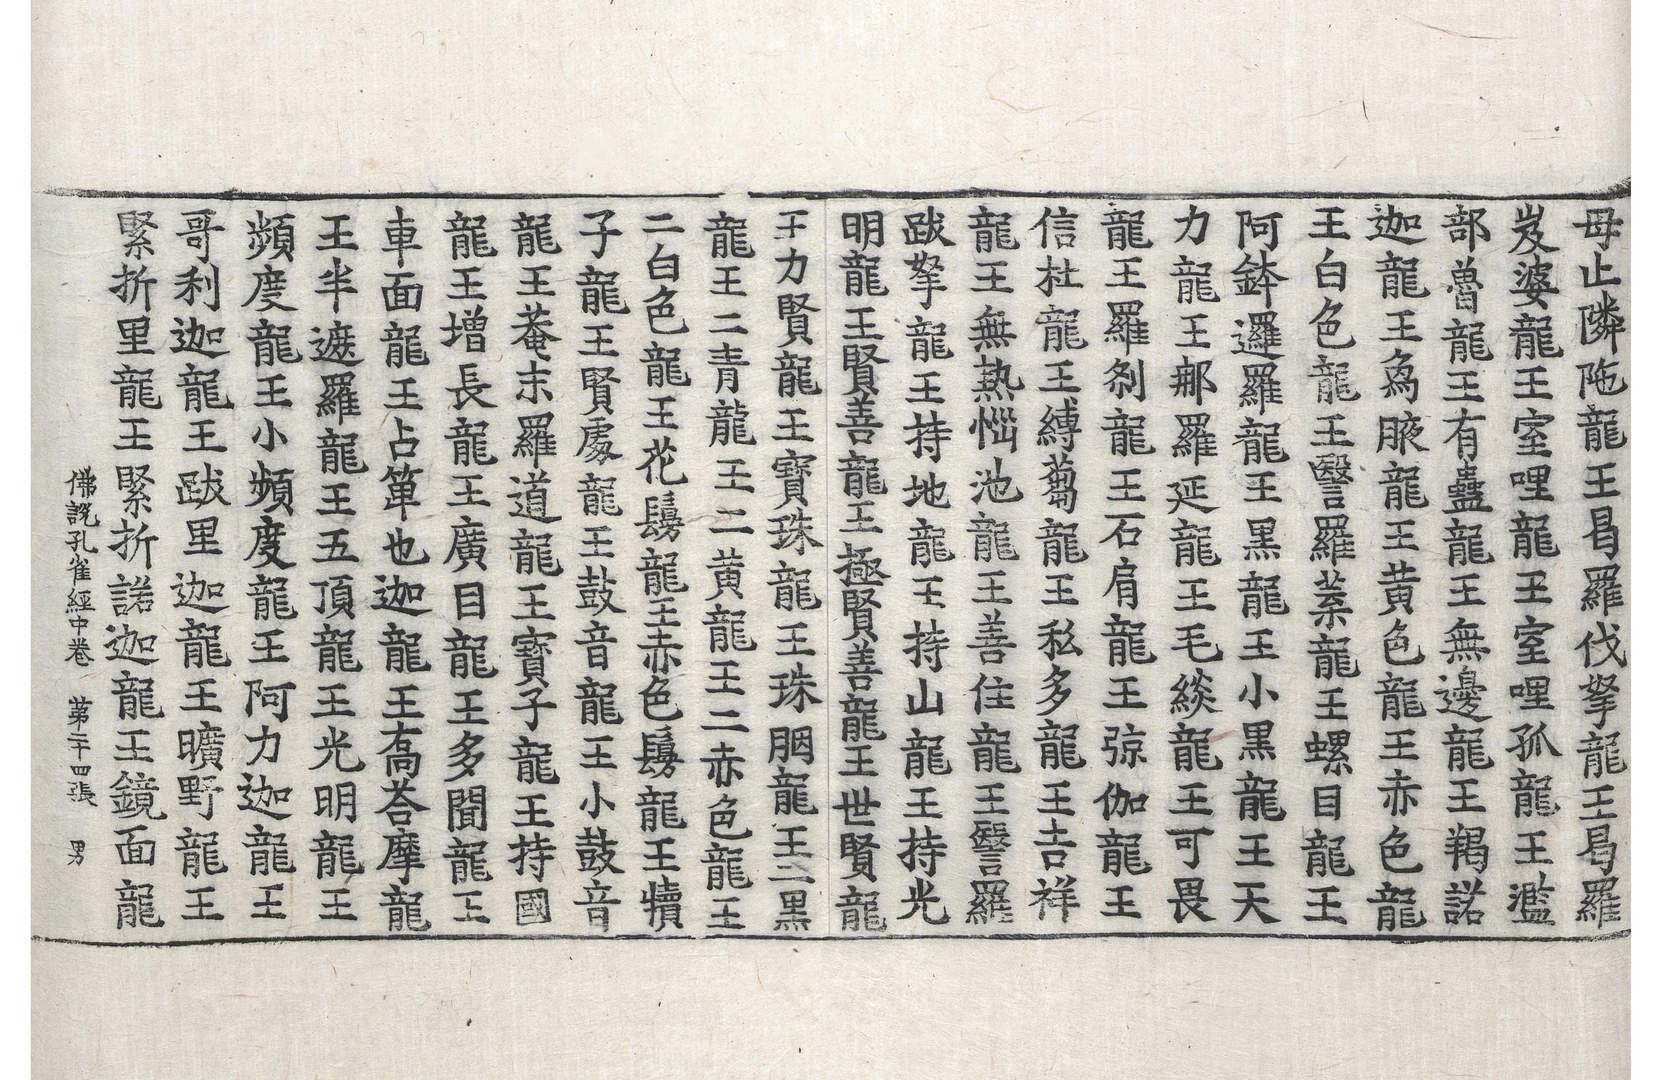 母止隣陁龍王㫚羅伐拏龍王㫚羅
岌婆龍王室哩龍王室哩孤龍王濫
部嚕龍王有蠱龍王無邊龍王羯諾
迦龍王為腋龍王黄色龍王赤色龍
王白色龍王翳羅葉龍王螺目龍王
阿鉢邏羅龍王黒龍王小黒龍王天
力龍王那羅延龍王毛緂龍王可畏
龍王羅刹龍王石肩龍王弶伽龍王
信杜龍王縛蒭龍王私多龍王吉祥
龍王無熱惱池龍王善住龍王翳羅
跋拏龍王持地龍王持山龍王持光
明龍王賢善龍王極賢善龍王世賢龍
王力賢龍王寶珠龍王珠胭龍王二黒
龍王二青龍王二黄龍王二赤色龍王
二白色龍王花鬘龍王赤色鬘龍王犢
子龍王賢處龍王鼓音龍王小鼓音
龍王菴末羅道龍王寶子龍王持國
龍王增長龍王廣目龍王多聞龍王
車面龍王占箄也迦龍王髙荅摩龍
王半遮羅龍王五頂龍王光明龍王
頻度龍王小頻度龍王阿力迦龍王
哥利迦龍王跋里迦龍王曠野龍王
緊折里龍王緊折諾迦龍王鏡面龍
佛說孔雀經中卷 第二十四張 男